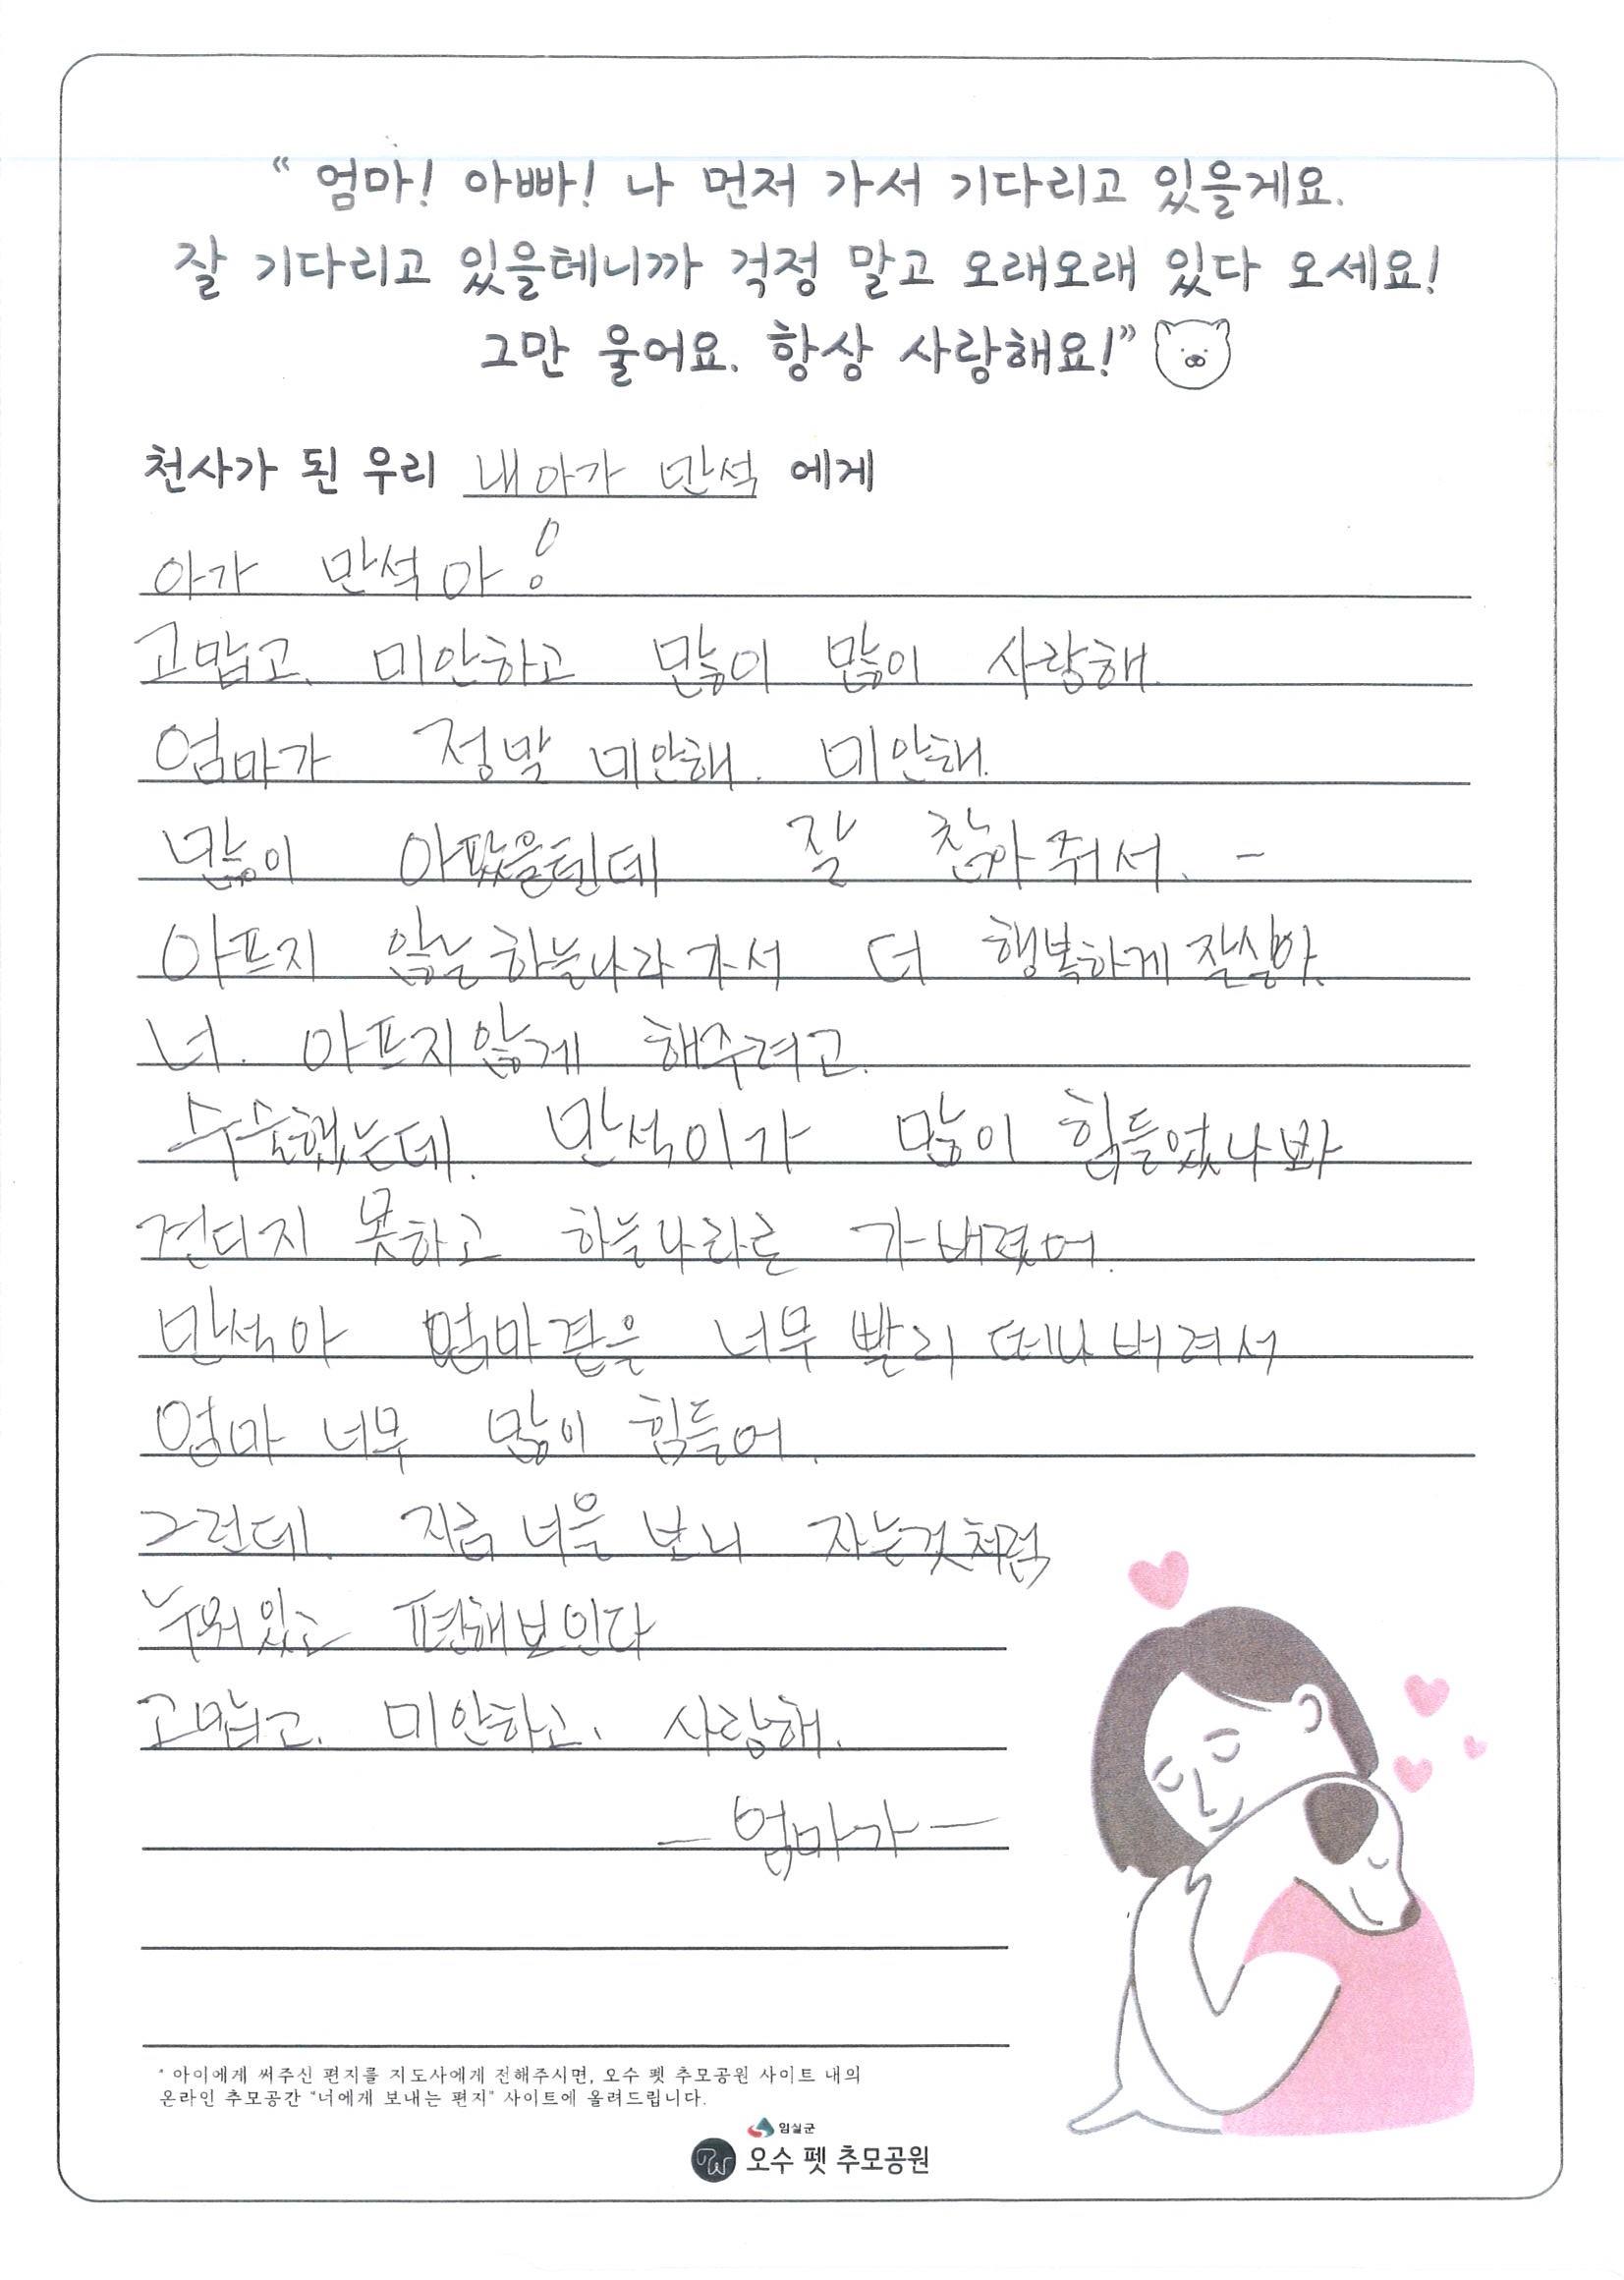 “ 엄마! 아빠! 나 먼저 가서 기다리고 있을게요.
잘 기다리고 있을테니까 걱정 말고 오래오래 있다 오세요!
그만 울어요. 항상 사랑해요!”
천사가 된 우리 내아가 만석 에게
아가 만석아!
고맙고, 미안하고 많이 많이 사랑해.
엄마가 정말 미안해. 미안해.
많이 아팠을텐데 잘 참아줘서. -
아프지 않는 하늘나라가서 더 행복하게 잘살아.
너. 아프지않게 해주려고.
수술했는데. 만석이가 많이 힘들었나봐
견디지 못하고 하늘나라로 가버렸어.
만석아 엄마곁을 너무 빨리 떠나버려서
엄마 너무 많이 힘들어.
그런데. 지금 너을 보니 자는것처럼
누워있고 편해보인다
고맙고. 미안하고. 사랑해.
- 엄마가 -
* 아이에게 써주신 편지를 지도사에게 전해주시면, 오수 펫 추모공원 사이트 내의
온라인 추모공간 “너에게 보내는 편지” 사이트에 올려드립니다.
임실군
오수 펫 추모공원